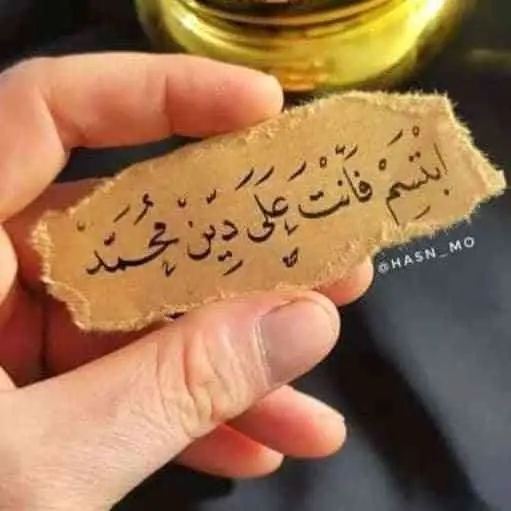 ابْتَسِمْ فَأَنْتَ عَلَى دِيْنِ مُحَمَّدْ
@HASN_MO